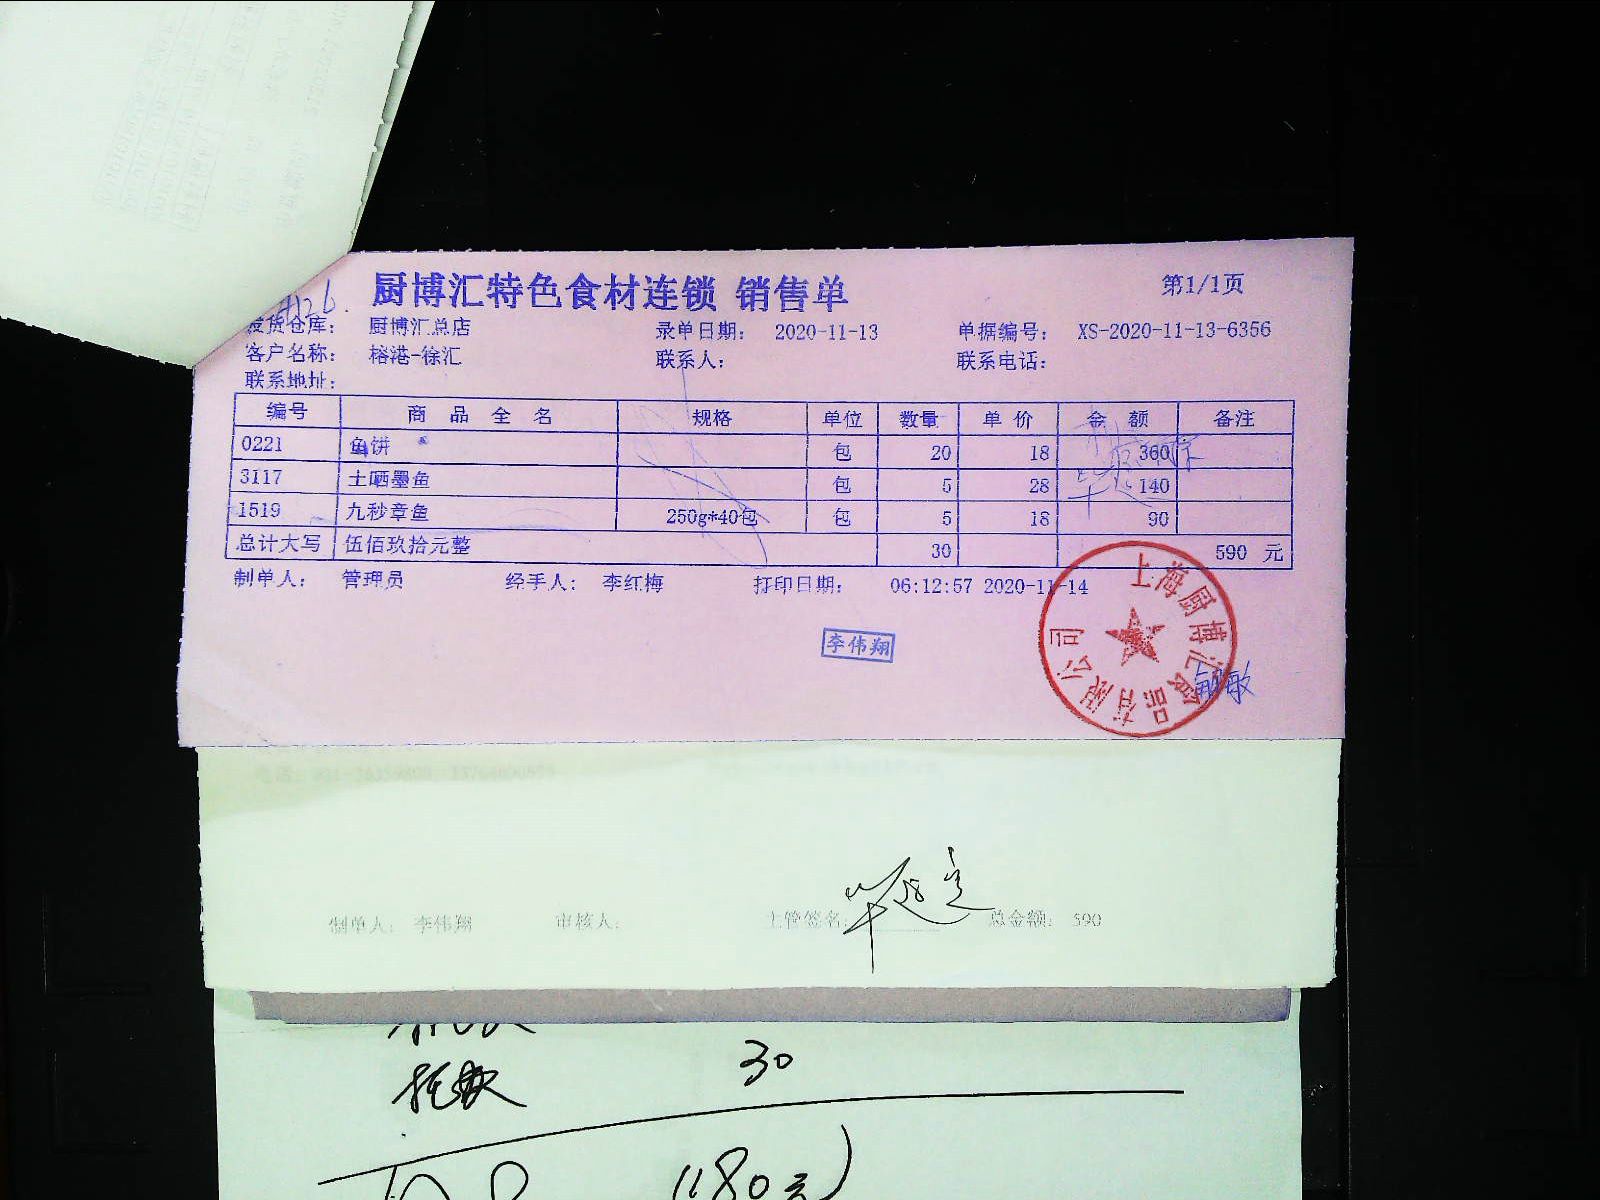 厨博汇特色食材连锁 销售单 第1/1页
发货仓库： 厨博汇总店 录单日期： 2020-11-13 单据编号： XS-2020-11-13-6356
客户名称： 榕港-徐汇 联系人： 联系电话：
联系地址：
编号 商品全名 规格 单位 数量 单价 金额 备注
0221 鱼饼 包 20 18 360
3117 土晒墨鱼 包 5 28 140
1519 九秒章鱼 250g*40包 包 5 18 90
总计大写 伍佰玖拾元整 30 590 元
制单人： 管理员 经手人： 李红梅 打印日期： 06:12:57 2020-11-14
李伟翔
上海厨博汇食品有限公司
制单人： 李伟翔 审核人： 主管签名： 总金额： 590
30
(180元)